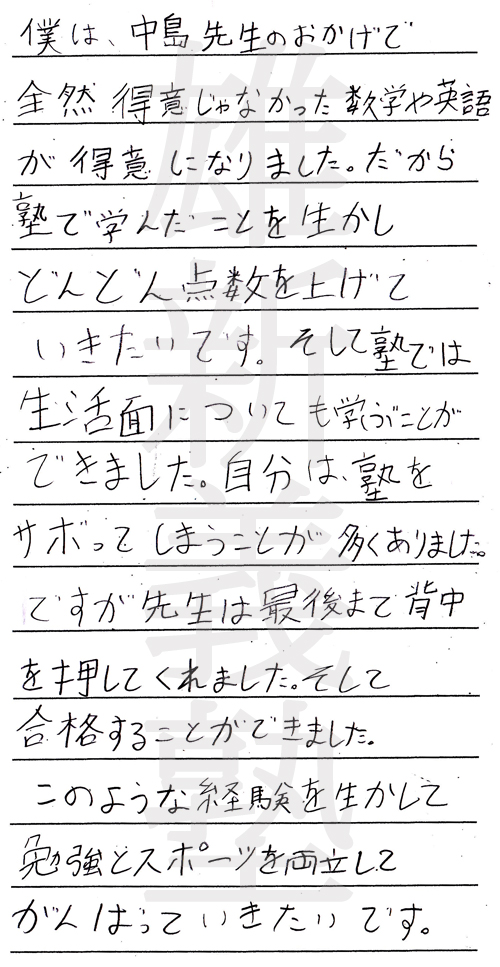 僕は、中島先生のおかげで
全然得意じゃなかった数学や英語
が得意になりました。だから
塾で学んだことを生かし
どんどん点数を上げて
いきたいです。そして塾では
生活面についても学ぶことが
できました。自分は、塾を
サボってしまうことが多くありました。
ですが先生は最後まで背中
を押してくれました。そして
合格することができました。
このような経験を生かして
勉強とスポーツを両立して
がんばっていきたいです。
雄新義塾